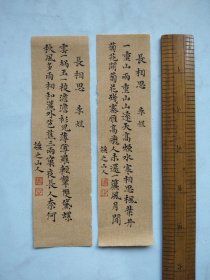 長相思 李煜
一重山兩重山山遠天高煙水寒相思楓葉丹
菊花開菊花殘塞雁高飛人未還一簾風月閒
之山人
長相思 李煜
雲一緺玉一梭澹澹衫兒薄薄羅輕顰雙黛螺
秋風多雨相和簾外芭蕉三兩窠夜長人奈何
之山人